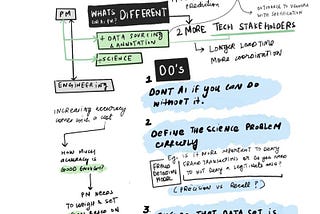 PREDICTION
OUTSOURCED TO VENDORS
WITH SPECIFICATION
PM
WHATS DIFFERENT
+ DATA SOURCING
& ANNOTATION
+SCIENCE
2 MORE TECH STAKEHOLDERS
LONGER LEAD TIME
MORE COORDINATION
ENGINEERING
INCREASING ACCURACY
COMES WITH A COST
HOW MUCH
ACCURACY IS
GOOD ENOUGH?
PM NEEDS
TO WEIGH & SET
BASED ON
DO's
1
DONT AI IF YOU CAN DO
WITHOUT IT.
2
DEFINE THE SCIENCE PROBLEM
CLEARLY
Eg.
FRAUD
DETECTION
MODEL
IS IT MORE IMPORTANT TO IDENTIFY
FRAUD TRANSACTIONS OR DO YOU NEED
TO NOT DENY A LEGITIMATE ONE?
(PRECISION VS RECALL?)
3
THAT DATA SET IS